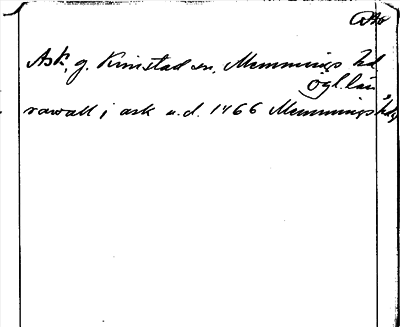 Ask, g. Kimstad sn, Memmings hd
Ögl. län
rawalt i ask u.d. 1466 Memmings hdr